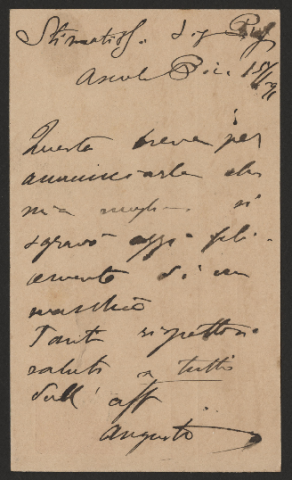 Stimatiss. Sig. Prof.
Ascoli Pic. 15/1
Questa breve per
annunciarle che
mia moglie si
sgravò oggi feli-
cemente di un
maschio
Tanti rispettosi
saluti a tutti
dall' aff
Augusto